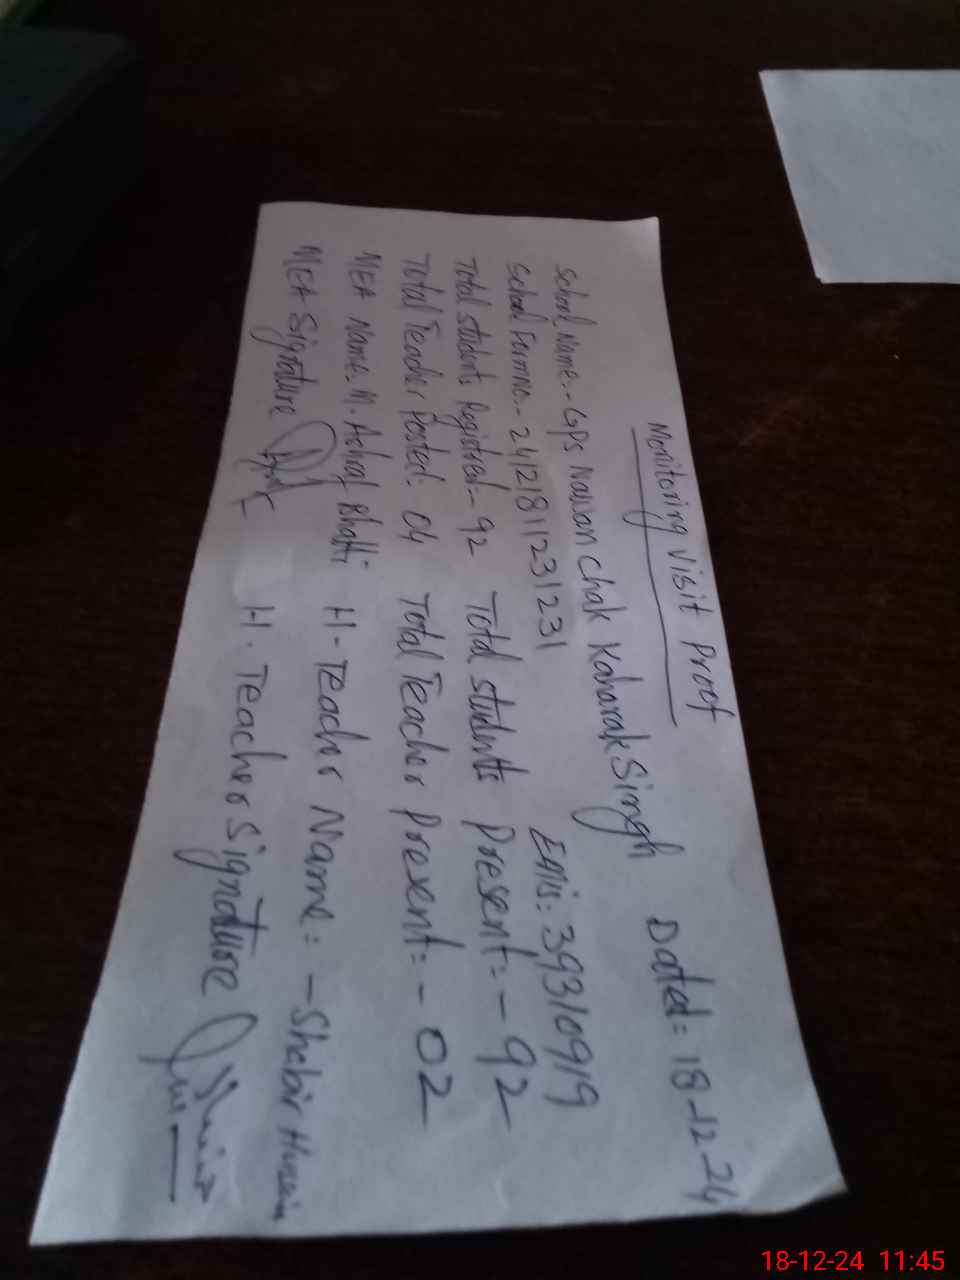 Monitoring Visit Proof
Dated: 18-12-24
School Name:- GPS Nawan Chak Kaharak Singh
School Formno.- 24121811231231 Emis: 39310919
Total Students Registred- 92 Total Students Present:- 92
Total Teacher Posted: 04 Total Teacher Present:- 02
MEA Name:- M. Ashraf Bhatti H-Teacher Name:- Shabir Hussain
MEA Signature H. Teacher Signature
18-12-24 11:45